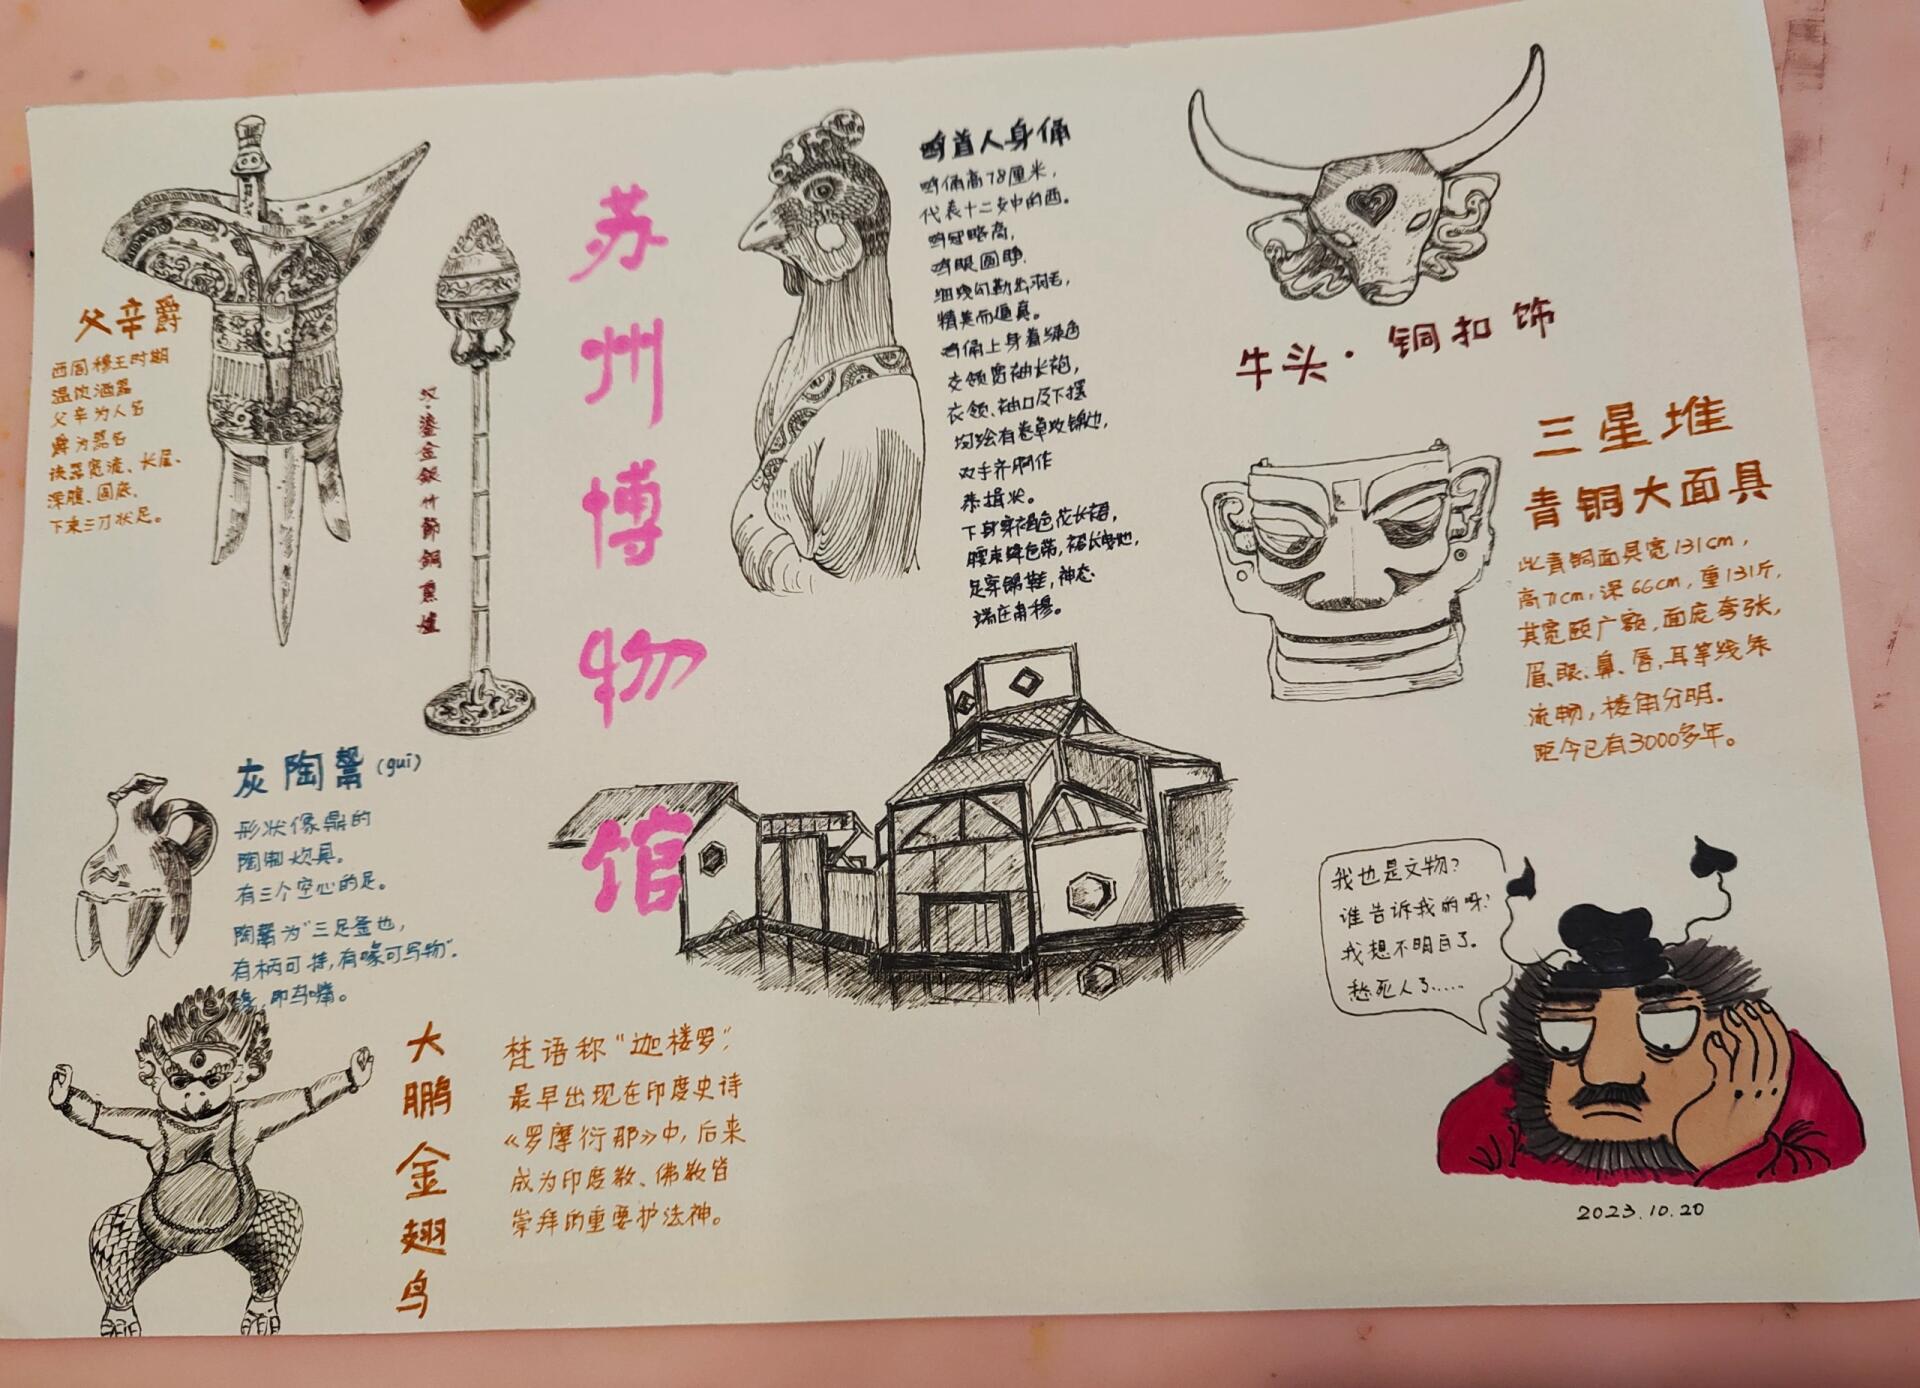 苏州博物馆
父辛爵
西周穆王时期
温饮酒器
父辛为人名
爵为器名
该器宽流、长尾、
深腹、圆底,
下束三刀状足。
汉·鎏金銀竹節銅熏爐
鸡首人身俑
鸡俑高78厘米,
代表十二支中的酉。
鸡冠略高,
鸡眼圆睁,
细线勾勒出羽毛,
精美而逼真。
鸡俑上身着绿色
交领宽袖长袍,
衣领、袖口及下摆
均绘有卷草纹锦边,
双手齐胸作
恭揖状。
下身穿褐色花长裙,
腰束绛色带,裙长曳地,
足穿锦鞋,神态
端庄肃穆。
牛头·铜扣饰
三星堆
青铜大面具
此青铜面具宽131cm,
高71cm,深66cm,重131斤,
其宽颐广额,面庞夸张,
眉、眼、鼻、唇,耳等线条
流畅,棱角分明.
距今已有3000多年。
灰陶鬶(gui)
形状像鼎的
陶制炊具。
有三个空心的足。
陶鬶为“三足釜也,
有柄可持,有喙可写物”.
喙,即鸟嘴。
大鹏金翅鸟
梵语称“迦楼罗”,
最早出现在印度史诗
《罗摩衍那》中,后来
成为印度教、佛教皆
崇拜的重要护法神。
我也是文物?
谁告诉我的呀?
我想不明白了。
愁死人了……
2023.10.20